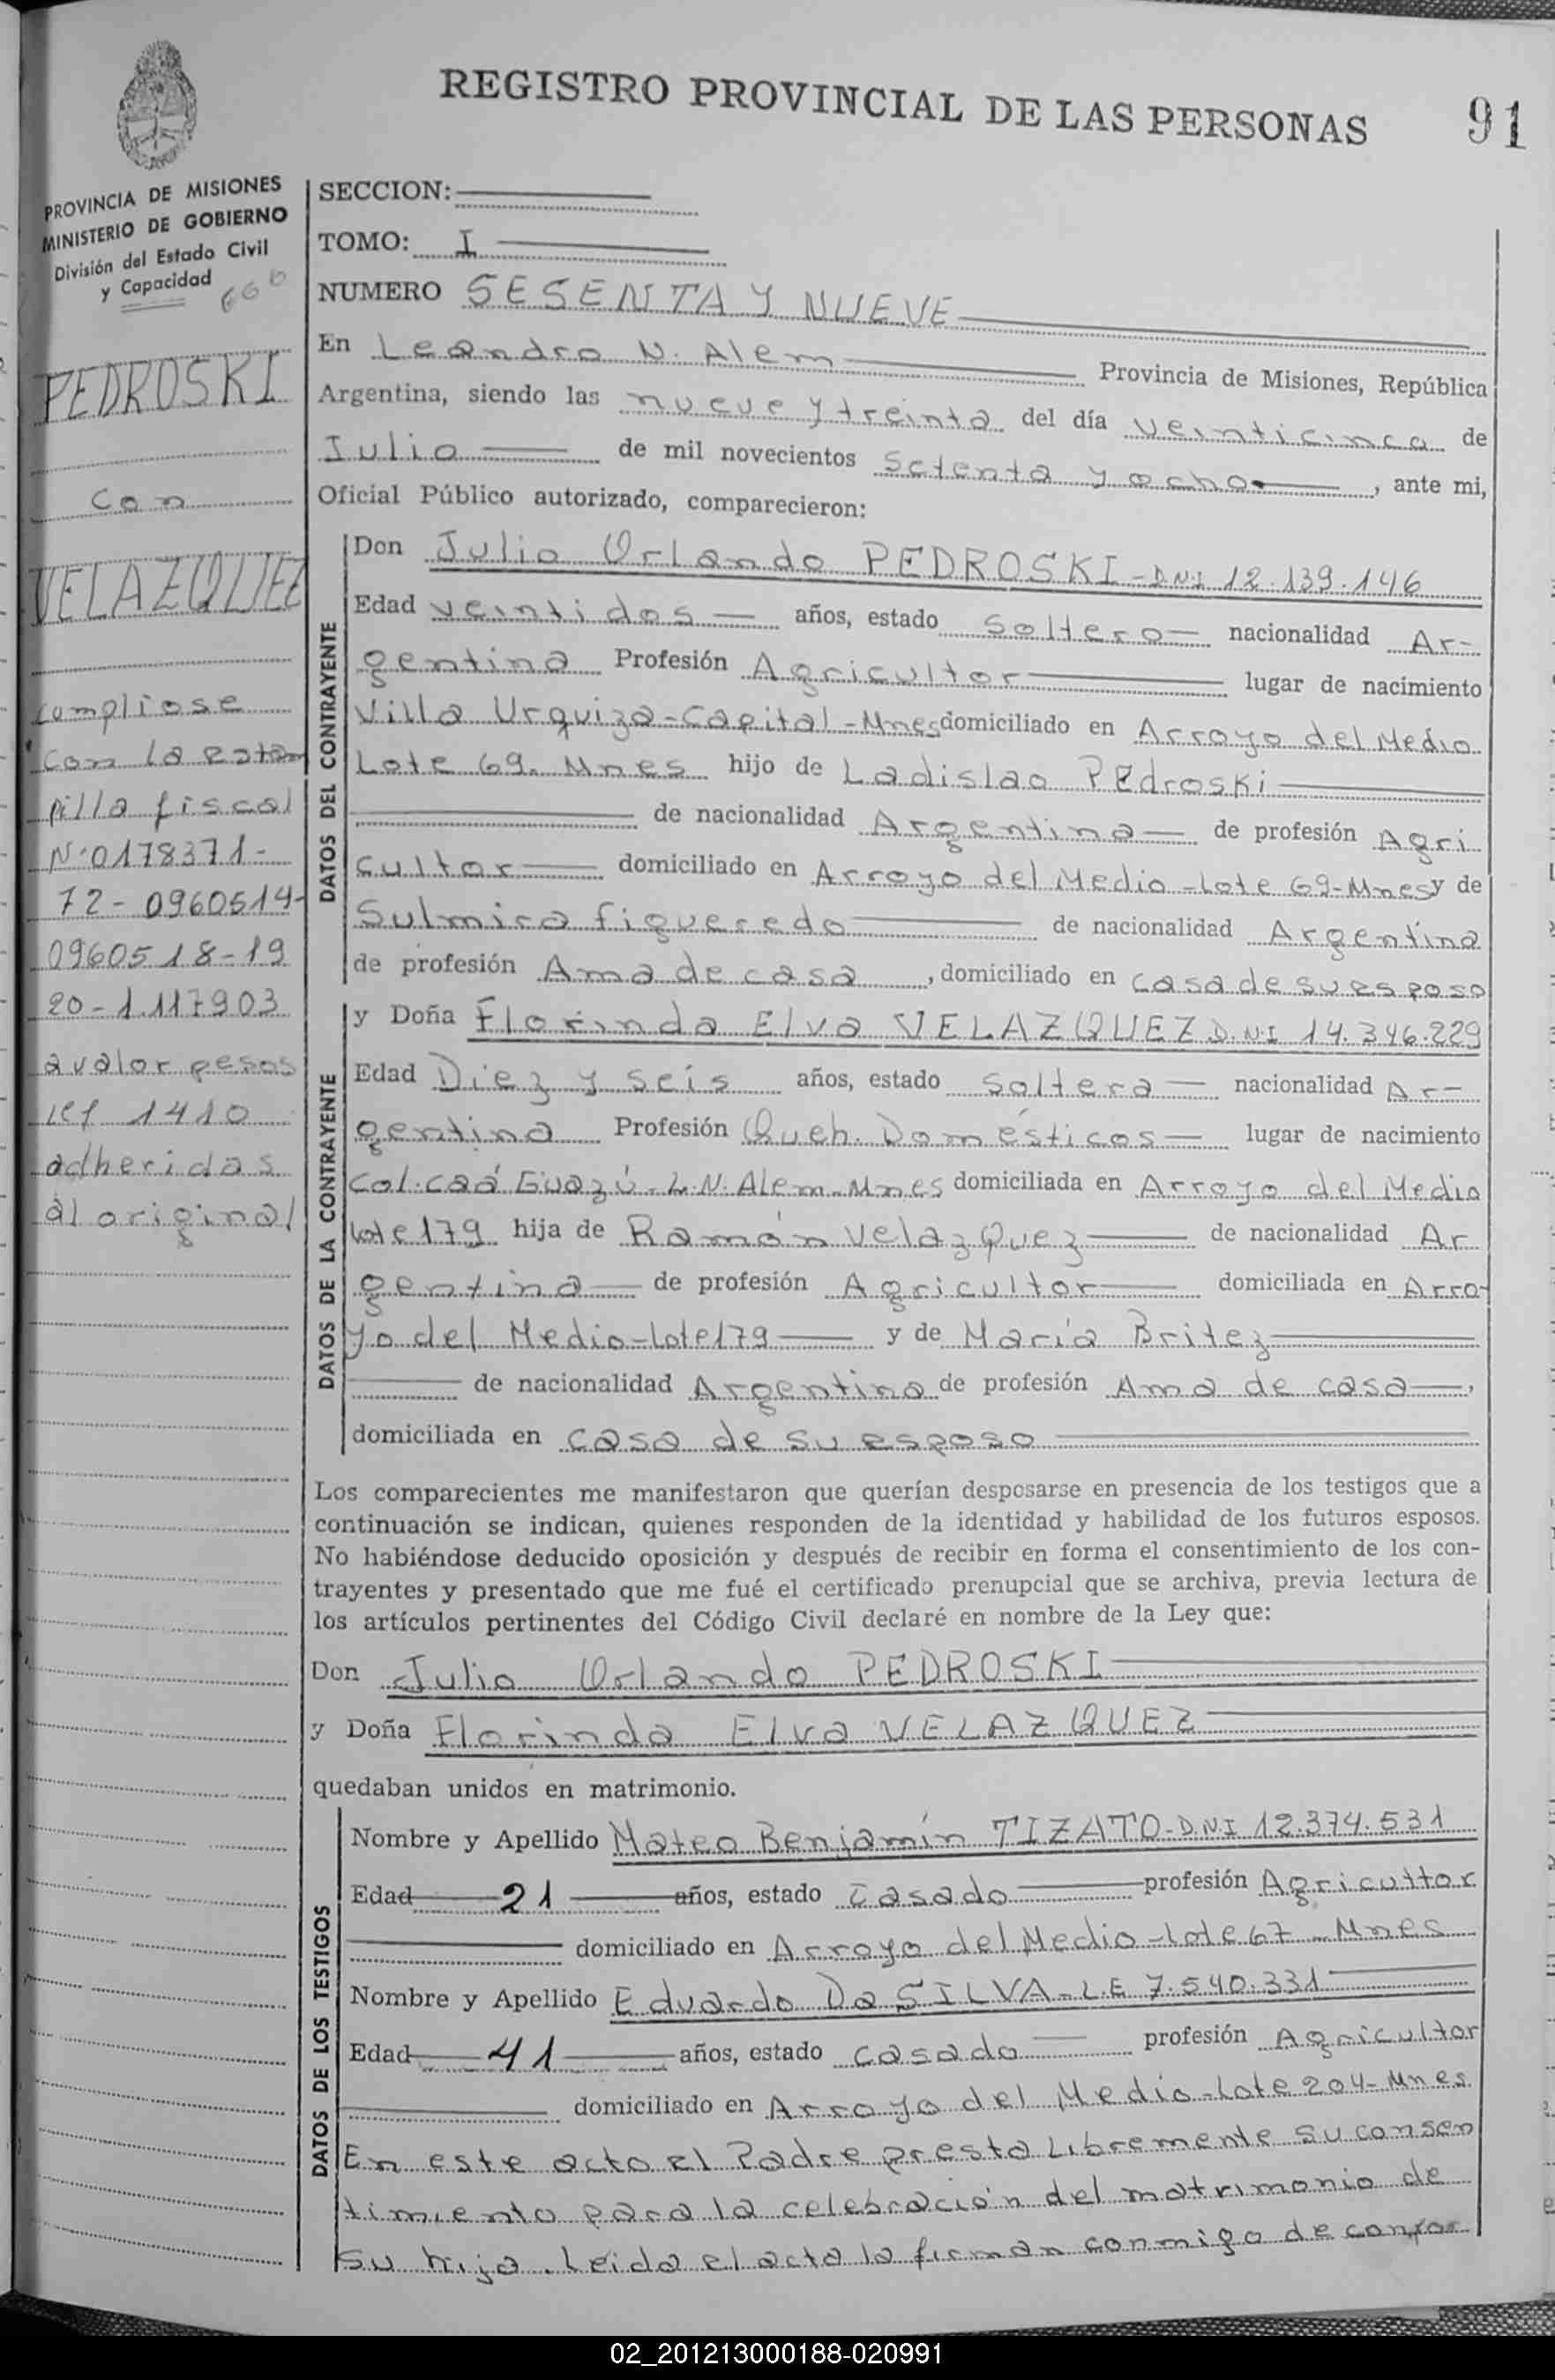 REGISTRO PROVINCIAL DE LAS PERSONAS
91
PROVINCIA DE MISIONES
MINISTERIO DE GOBIERNO
División del Estado Civil
y Capacidad
PEDROSKI
con
VELAZQUEZ
cumpliose
con la estam
pilla fiscal
Nº0178371-
72-0960514-
0960518-19
20-1.117903
a valor pesos
ley 1410
adheridas
al original
SECCION:
TOMO: I
NUMERO SESENTA Y NUEVE
En Leandro N. Alem Provincia de Misiones, República
Argentina, siendo las nueve y treinta del día veinticinco de
Julio de mil novecientos setenta y ocho, ante mi,
Oficial Público autorizado, comparecieron:
DATOS DEL CONTRAYENTE
Don Julio Orlando PEDROSKI-D.N.I 12.139.146
Edad veintidos años, estado soltero nacionalidad Ar-
gentina Profesión Agricultor lugar de nacimiento
Villa Urquiza-Capital-Mnes domiciliado en Arroyo del Medio
Lote 69. Mnes hijo de Ladislao PEdroski
de nacionalidad Argentina de profesión Agri
cultor domiciliado en Arroyo del Medio-Lote 69-Mnes y de
Sulmira figueredo de nacionalidad Argentina
de profesión Ama de casa, domiciliado en casa de su esposo
DATOS DE LA CONTRAYENTE
y Doña Florinda Elva VELAZQUEZ D.N.I 14.346.229
Edad Diez y seis años, estado soltera nacionalidad Ar-
gentina Profesión Queh. Domésticos lugar de nacimiento
Col. Caá Guazú-L.N.Alem-Mnes domiciliada en Arroyo del Medio
lote 179 hija de Ramón VelazQuez de nacionalidad Ar
gentina de profesión Agricultor domiciliada en Arro-
yo del Medio-Lote179 y de María Britez
de nacionalidad Argentina de profesión Ama de casa,
domiciliada en casa de su esposo
Los comparecientes me manifestaron que querían desposarse en presencia de los testigos que a
continuación se indican, quienes responden de la identidad y habilidad de los futuros esposos.
No habiéndose deducido oposición y después de recibir en forma el consentimiento de los con-
trayentes y presentado que me fué el certificado prenupcial que se archiva, previa lectura de
los artículos pertinentes del Código Civil declaré en nombre de la Ley que:
Don Julio Orlando PEDROSKI
y Doña Florinda Elva VELAZQUEZ
quedaban unidos en matrimonio.
DATOS DE LOS TESTIGOS
Nombre y Apellido Mateo Benjamín TIZATO-D.N.I 12.374.531
Edad 21 años, estado casado profesión Agricultor
domiciliado en Arroyo del Medio-lote 67-Mnes
Nombre y Apellido Eduardo Da SILVA-L.E 7.540.331
Edad 41 años, estado casado profesión Agricultor
domiciliado en Arroyo del Medio-Lote 204-Mnes
En este acto el Padre presta Libremente su consen
timiento para la celebración del matrimonio de
su hija. Leida el acta la firman conmigo de confor
02_201213000188-020991